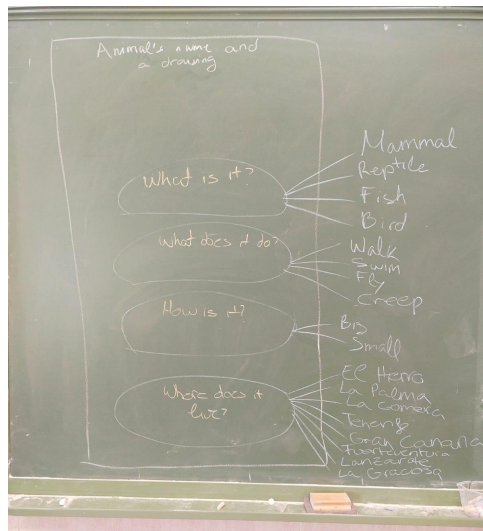 Animal's name and
a drawing
What is it?
Mammal
Reptile
Fish
Bird
What does it do?
Walk
Swim
Fly
Creep
How is it?
Big
Small
Where does it
live?
El Hierro
La Palma
La Gomera
Tenerife
Gran Canaria
Fuerteventura
Lanzarote
La Graciosa